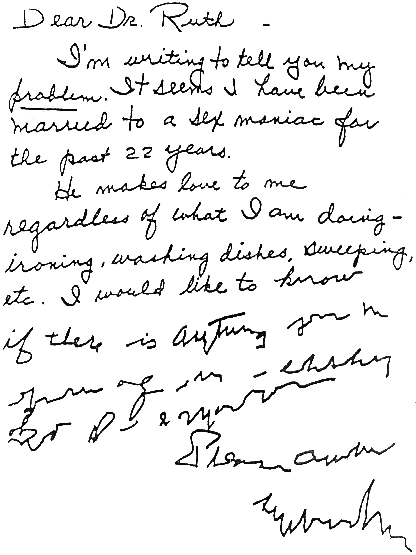 Dear Dr. Ruth -
I'm writing to tell you my
problem. It seems I have been
married to a sex maniac for
the past 22 years.
He makes love to me
regardless of what I am doing -
ironing, washing dishes, sweeping,
etc. I would like to know
if there is anything